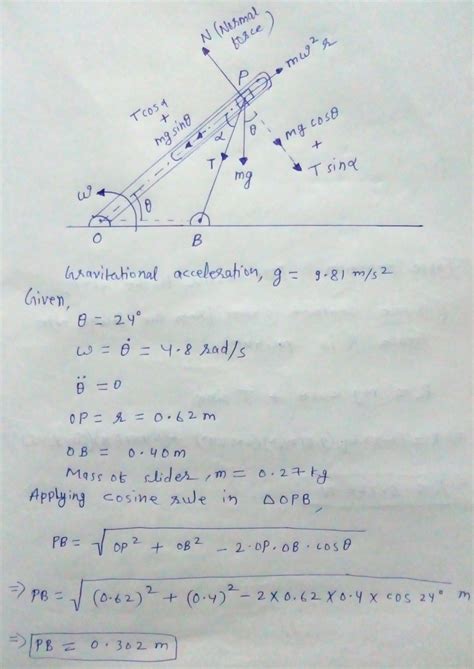 N (Normal
force)
P
mω²r
Tcosα
+
mgsinθ
α
θ
mgcosθ
+
Tsinα
T
mg
ω
θ
O
B
Gravitational acceleration, g = 9.81 m/s²
Given,
θ = 24°
ω = θ̇ = 4.8 rad/s
θ̈ = 0
OP = r = 0.62 m
OB = 0.40m
Mass of slider, m = 0.27 kg
Applying cosine rule in △OPB,
PB = √OP² + OB² - 2·OP·OB·cosθ
⇒ PB = √(0.62)² + (0.4)² - 2×0.62×0.4×cos 24° m
⇒ PB = 0.302 m